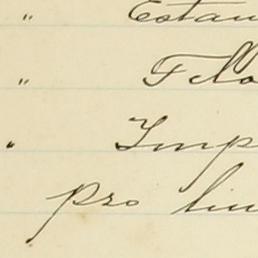 " Estan
" Felo
" Imp
pro liu